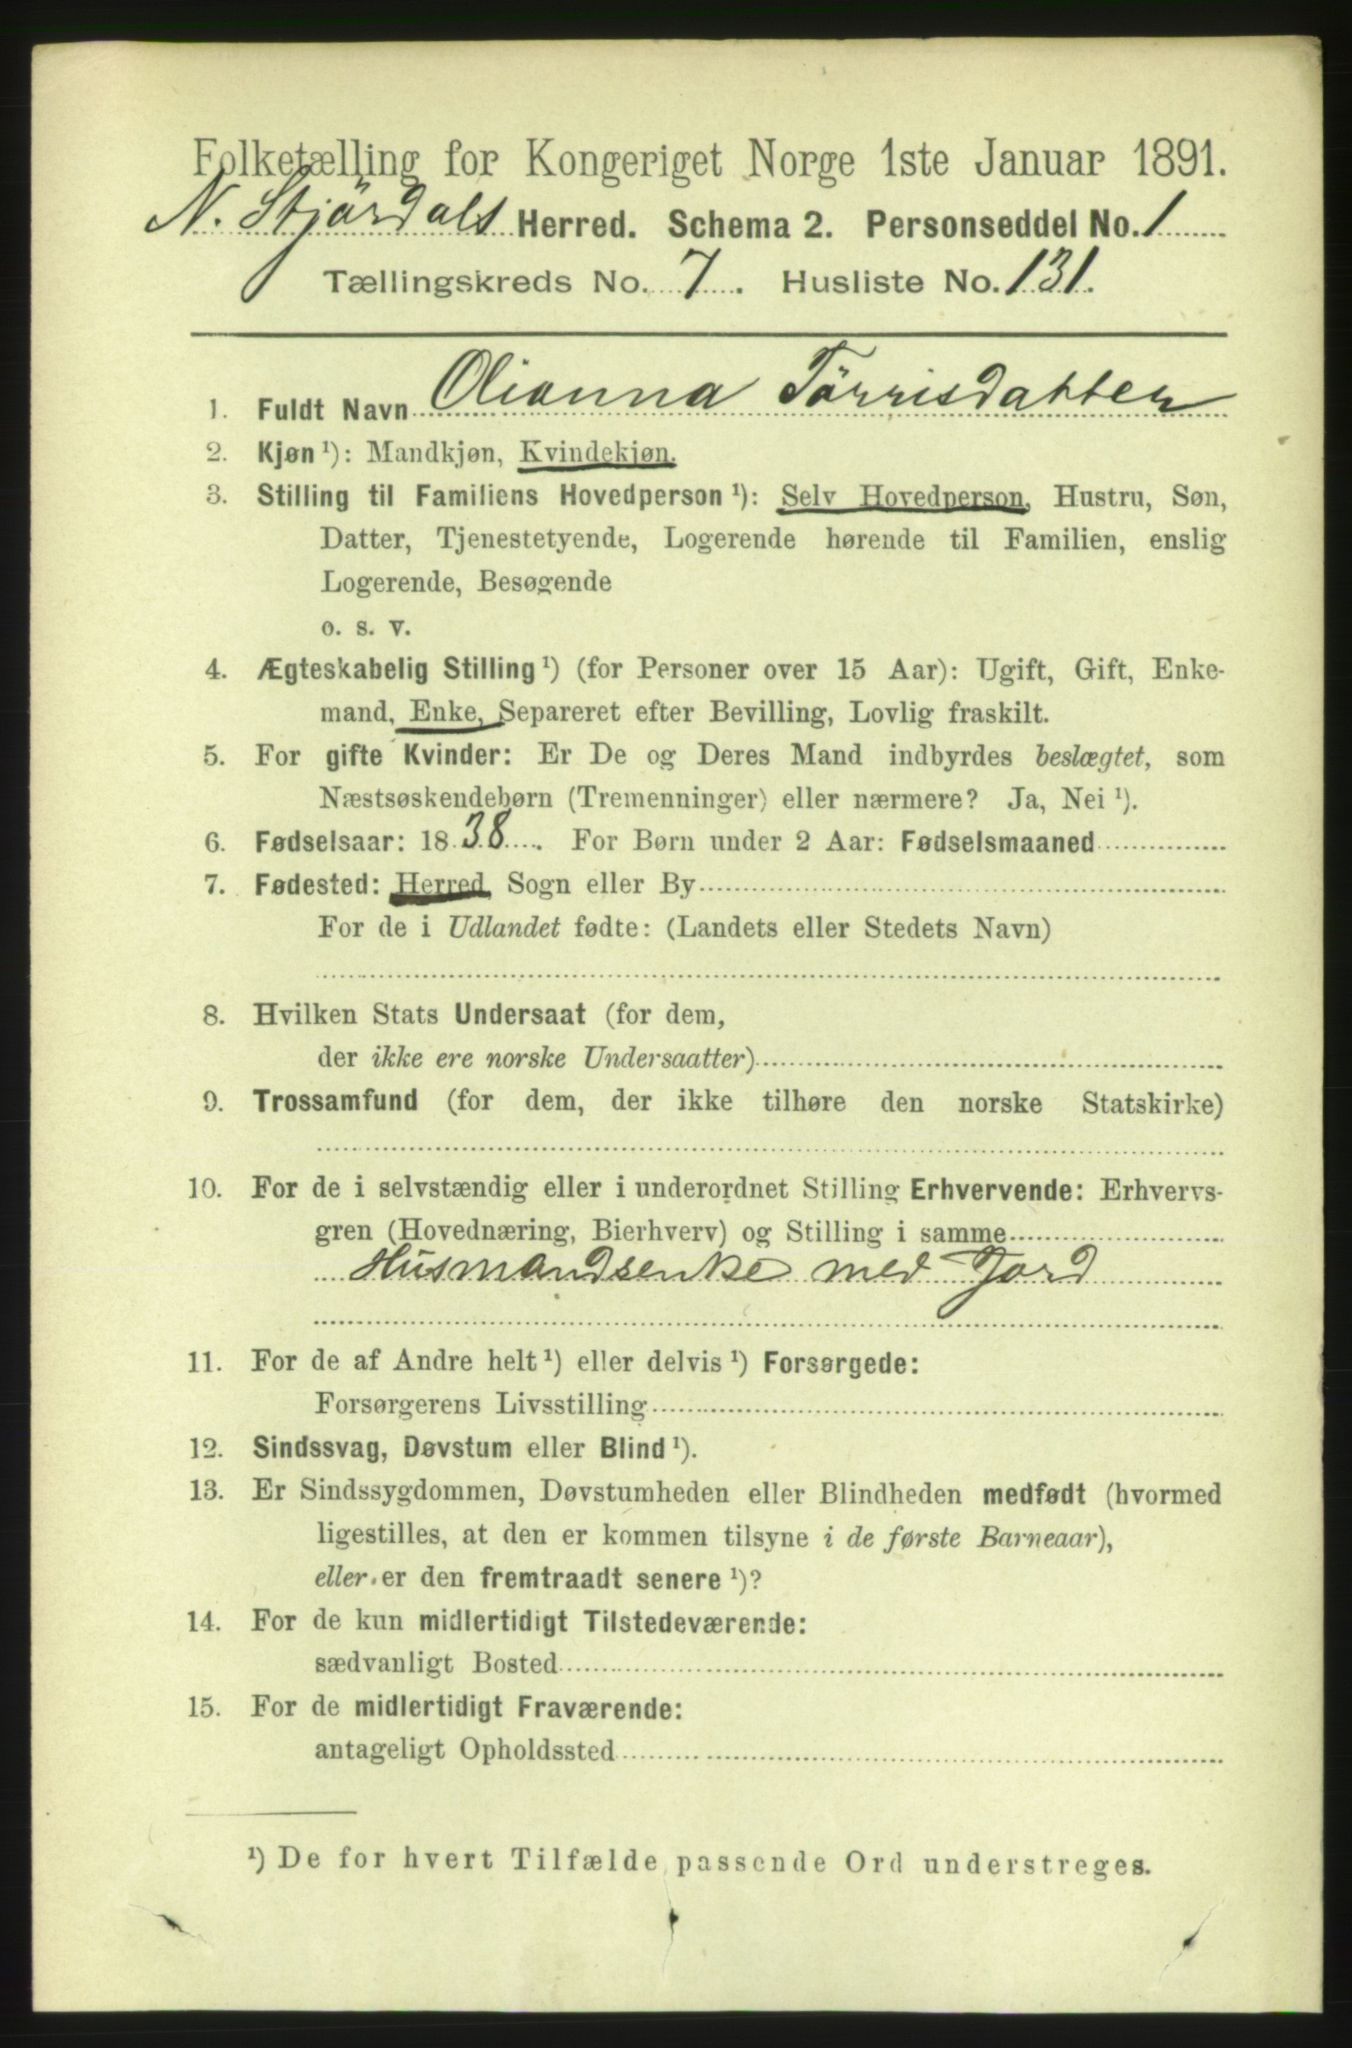 Folketælling for Kongeriget Norge 1ste Januar 1891.
N. Stjördals Herred. Schema 2. Personseddel No. 1
Tællingskreds No. 7. Husliste No. 131.
1. Fuldt Navn Olianna Törrisdatter
2. Kjøn ¹): Mandkjøn, Kvindekjøn.
3. Stilling til Familiens Hovedperson ¹): Selv Hovedperson, Hustru, Søn,
Datter, Tjenestetyende, Logerende hørende til Familien, enslig
Logerende, Besøgende
o. s. v.
4. Ægteskabelig Stilling ¹) (for Personer over 15 Aar): Ugift, Gift, Enke-
mand, Enke, Separeret efter Bevilling, Lovlig fraskilt.
5. For gifte Kvinder: Er De og Deres Mand indbyrdes beslægtet, som
Næstsøskendebørn (Tremenninger) eller nærmere? Ja, Nei ¹).
6. Fødselsaar: 1838. For Børn under 2 Aar: Fødselsmaaned
7. Fødested: Herred, Sogn eller By
For de i Udlandet fødte: (Landets eller Stedets Navn)
8. Hvilken Stats Undersaat (for dem,
der ikke ere norske Undersaatter)
9. Trossamfund (for dem, der ikke tilhøre den norske Statskirke)
10. For de i selvstændig eller i underordnet Stilling Erhvervende: Erhvervs-
gren (Hovednæring, Bierhverv) og Stilling i samme
Husmandsenke med Jord
11. For de af Andre helt ¹) eller delvis ¹) Forsørgede:
Forsørgerens Livsstilling
12. Sindssvag, Døvstum eller Blind ¹).
13. Er Sindssygdommen, Døvstumheden eller Blindheden medfødt (hvormed
ligestilles, at den er kommen tilsyne i de første Barneaar),
eller er den fremtraadt senere ¹)?
14. For de kun midlertidigt Tilstedeværende:
sædvanligt Bosted
15. For de midlertidigt Fraværende:
antageligt Opholdssted
¹) De for hvert Tilfælde passende Ord understreges.